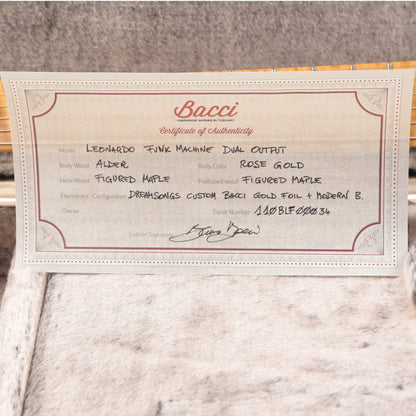 Bacci
HANDMADE GUITARS IN TUSCANY
Certificate of Authenticity
Model LEONARDO FUNK MACHINE DUAL OUTPUT
Body Wood ALDER Body Color ROSE GOLD
Neck Wood FIGURED MAPLE Fretboard wood FIGURED MAPLE
Electronics Configuration DREAMSONGS CUSTOM BACCI GOLD FOIL + MODERN B.
Owner Serial Number 110BLF00034
Luthier Signature